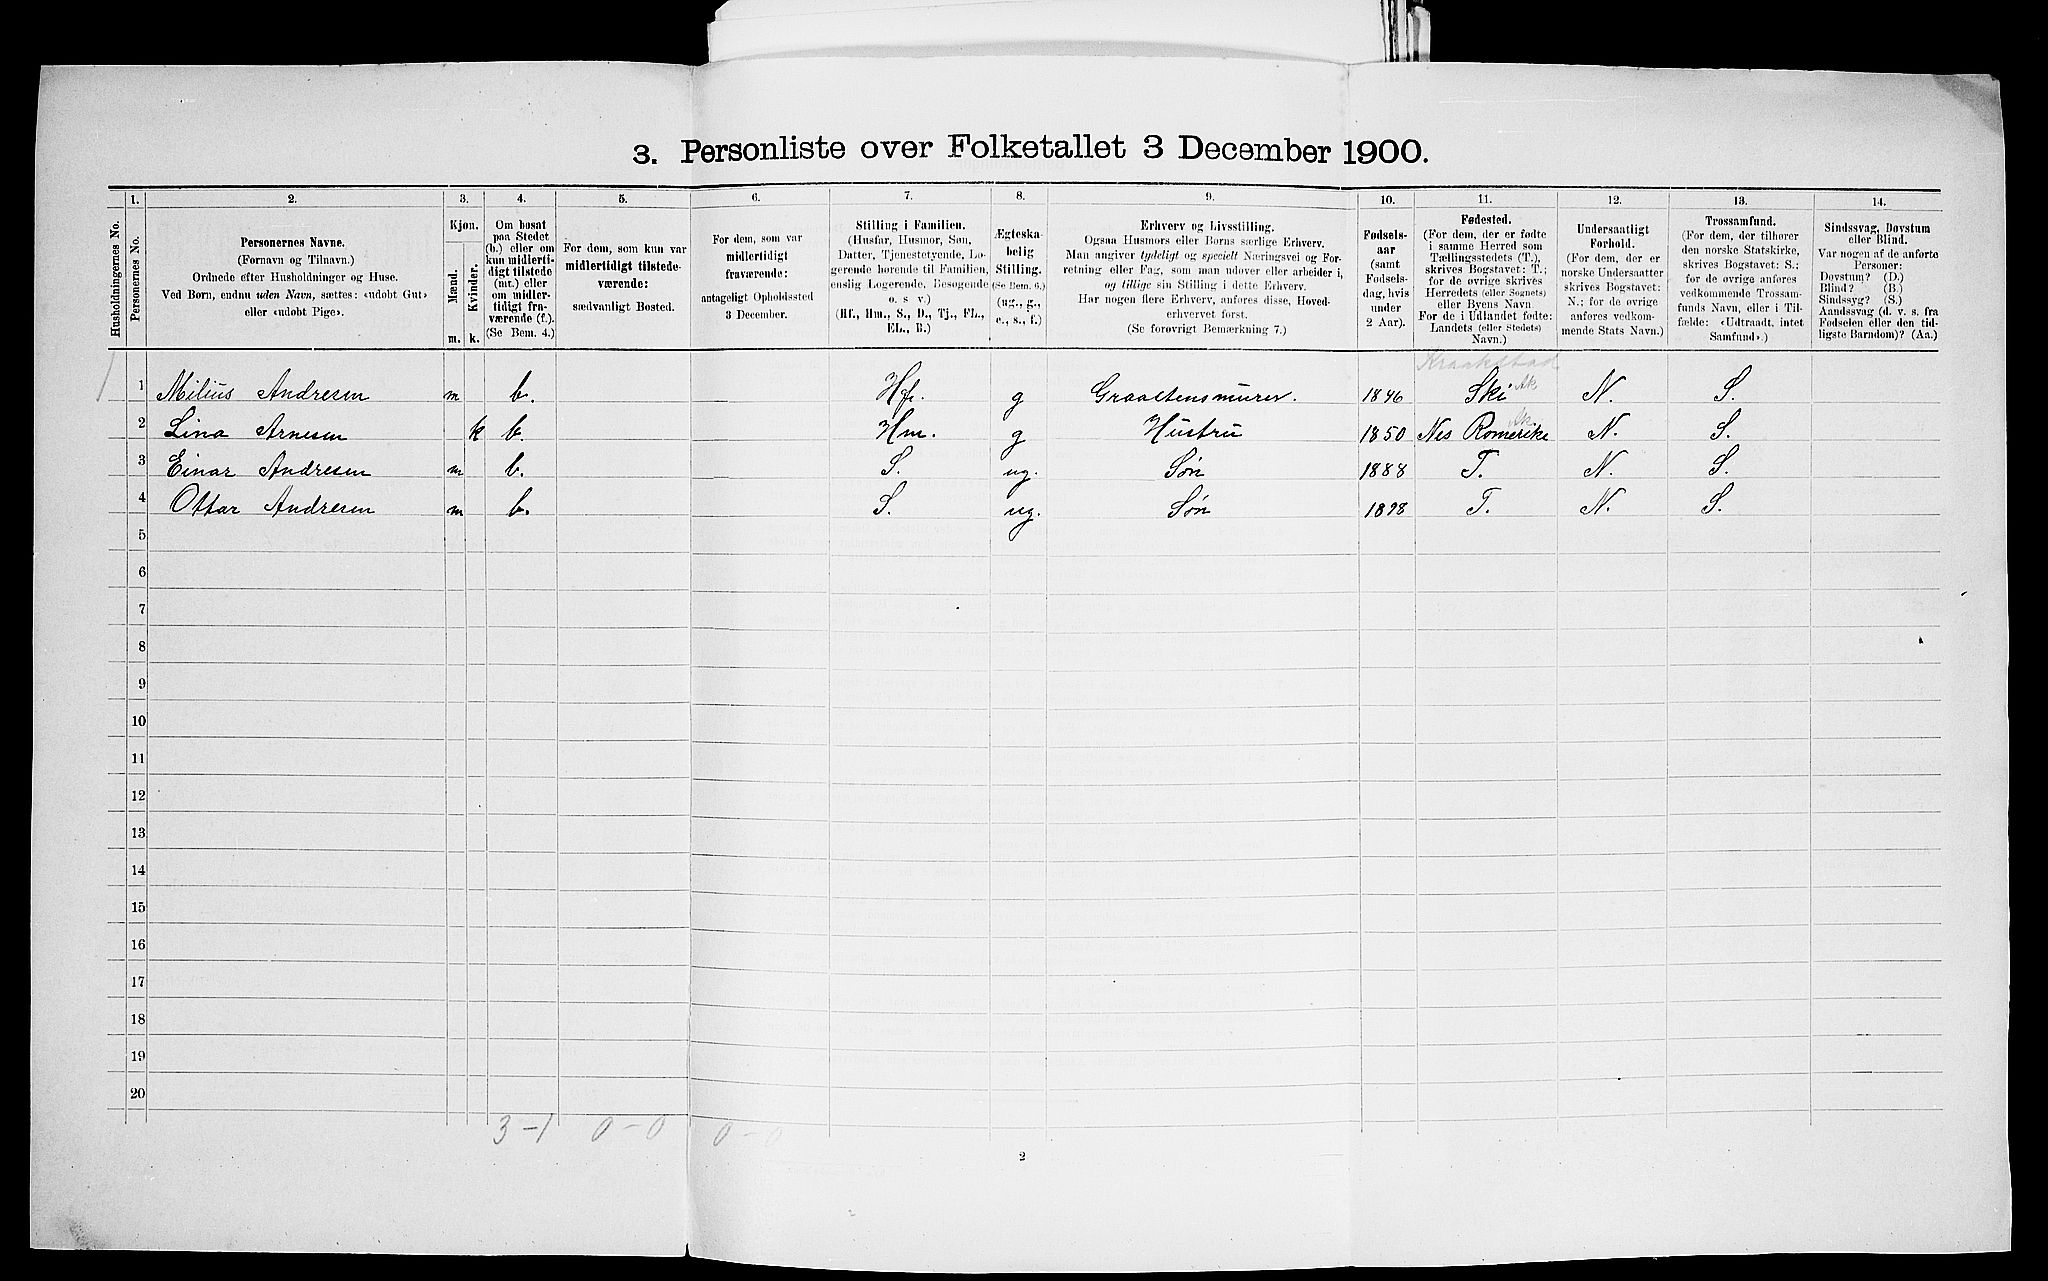 3. Personliste over Folketallet 3 December 1900.
1. 2. 3. 4. 5. 6. 7. 8. 9. 10. 11. 12. 13. 14.
Husholdningernes No.
Personernes No.
Personernes Navne.
(Fornavn og Tilnavn.)
Ordnede efter Husholdninger og Huse.
Ved Børn, endnu uden Navn, sættes: «udøbt Gut»
eller «udøbt Pige».
Kjøn.
Mænd.
Kvinder.
m. k.
Om bosat
paa Stedet
(b.) eller om
kun midlerti-
digt tilstede
(mt.) eller
om midler-
tidigt fra-
værende (f.).
(Se Bem. 4.)
For dem, som kun var
midlertidigt tilstede-
værende:
sædvanligt Bosted.
For dem, som var
midlertidigt
fraværende:
antageligt Opholdssted
3 December.
Stilling i Familien.
(Husfar, Husmor, Søn,
Datter, Tjenestetyende, Lo-
gerende hørende til Familien,
enslig Logerende, Besøgende
o. s. v.)
(Hf., Hm., S., D., Tj., FL.,
EL., B.)
Ægteska-
belig
Stilling.
(Se Bem. 6.)
(ug., g.,
e., s., f.)
Erhverv og Livsstilling.
Ogsaa Husmors eller Børns særlige Erhverv.
Man angiver tydeligt og specielt Næringsvei og For-
retning eller Fag, som man udøver eller arbeider i,
og tillige sin Stilling i dette Erhverv.
Har nogen flere Erhverv, anføres disse, Hoved-
erhvervet først.
(Se forøvrigt Bemærkning 7.)
Fødsels-
aar
(samt
Fødsels-
dag, hvis
under
2 Aar).
Fødested.
(For dem, der er fødte
i samme Herred som
Tællingsstedets (T.),
skrives Bogstavet: T.;
for de øvrige skrives
Herredets (eller Sognets)
eller Byens Navn
For de i Udlandet fødte:
Landets (eller Stedets)
Navn.)
Undersaatligt
Forhold.
(For dem, der er
norske Undersaatter
skrives Bogstavet:
N.; for de øvrige
anføres vedkom-
mende Stats Navn.)
Trossamfund.
(For dem, der tilhører
den norske Statskirke,
skrives Bogstavet: S.;
for de øvrige anføres
vedkommende Trossam-
funds Navn, eller i Til-
fælde: «Udtraadt, intet
Samfund».)
Sindssvag, Døvstum
eller Blind.
Var nogen af de anførte
Personer:
Døvstum? (D.)
Blind? (B.)
Sindssyg? (S.)
Aandssvag (d. v. s. fra
Fødselen eller den tid-
ligste Barndom)? (Aa.)
Kraakstad
1 1 Milius Andresen m b. Hf. g Graaltensmurer. 1846 Ski Ak N. S.
Ak
2 Lina Arnesen k b. Hm. g Hustru 1850 Nes Romerike N. S.
3 Einar Andresen m b. S. ug. Søn 1888 T. N. S.
4 Ottar Andresen m b. S. ug. Søn 1898 T. N. S.
5
6
7
8
9
10
11
12
13
14
15
16
17
18
19
20
3-1 0-0 0-0
2